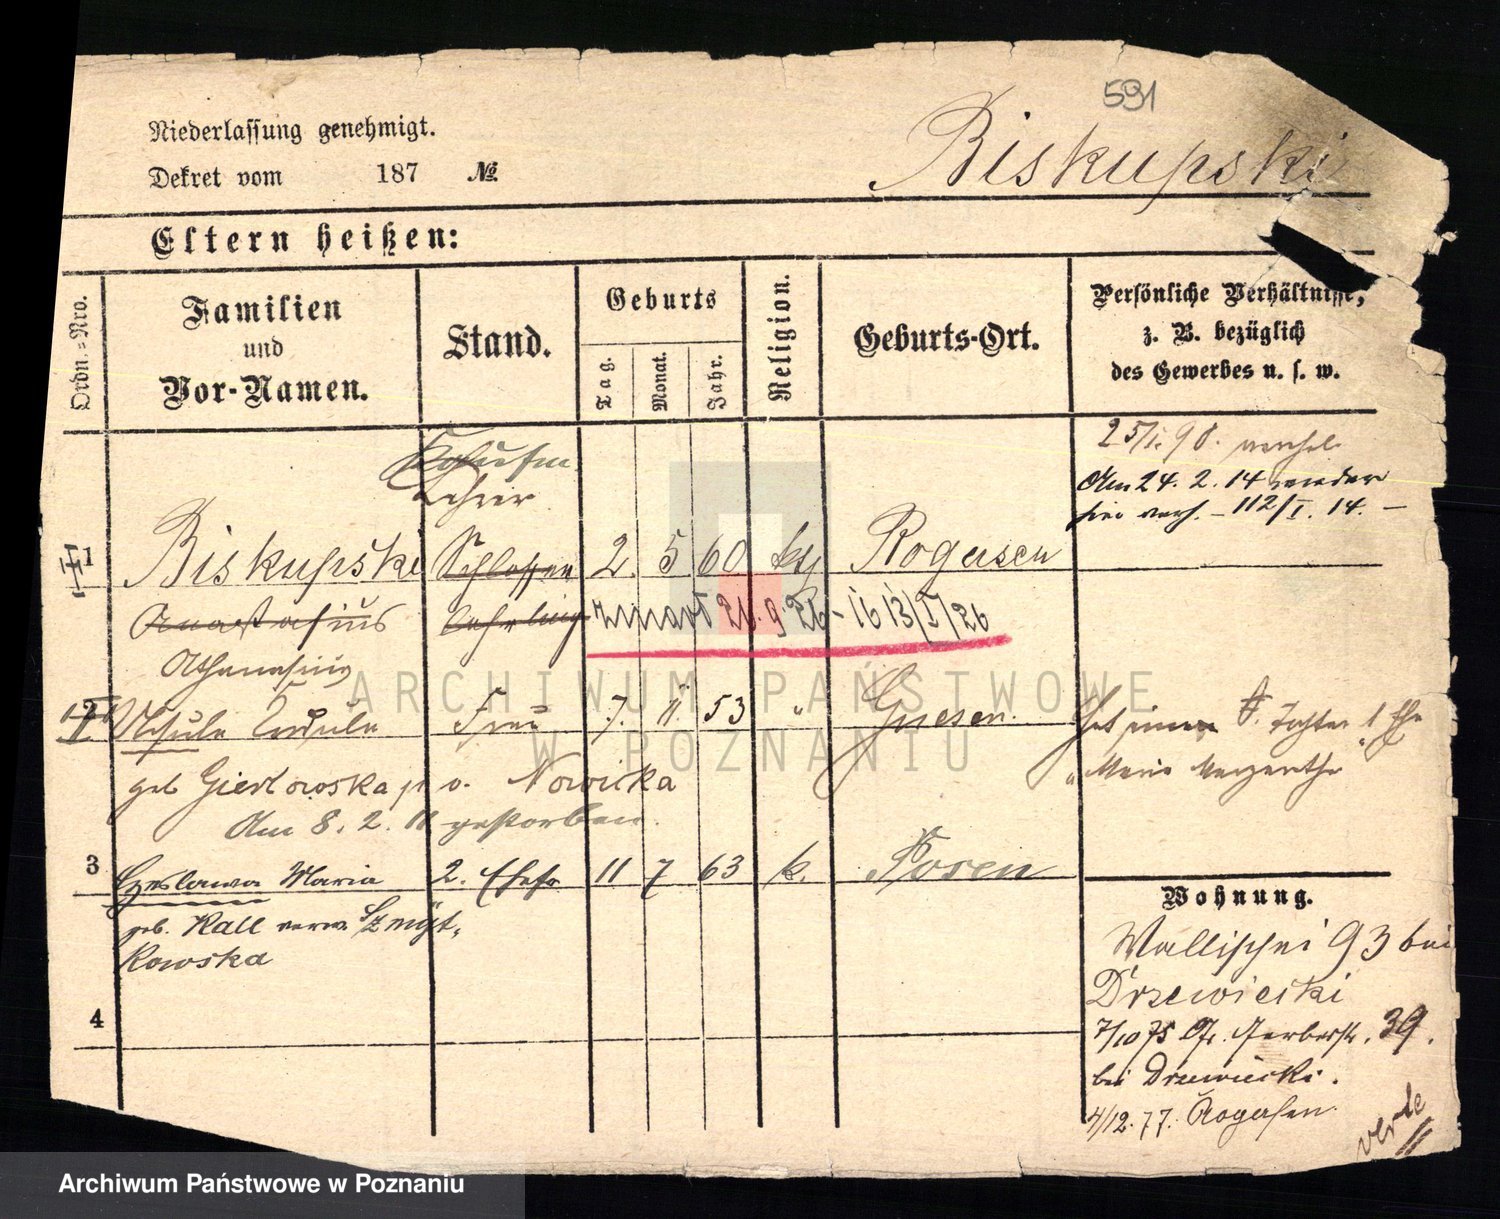 591
Niederlassung genehmigt.
Biskupski
Dekret vom 187 №
Eltern heißen:
Ordn.-Nro.
Familien
und
Vor-Namen.
Stand.
Geburts
Tag.
Monat.
Jahr.
Religion.
Geburts-Ort.
Persönliche Verhältnisse,
z. B. bezüglich
des Gewerbes u. s. w.
25/I. 90.
Am 24. 2. 14 wieder
hier verh. - 112/I. 14. -
Lehrer
1 Biskupski Schlosser 2. 5 60 kth Rogasen
Anastasius Lehrling zmarł 21. 9. 26 - 16 13/I/26
Athanasius
2 Ursula Frau 7. 11. 53 " Gnesen.
geb v. Nowicka
Am 8. 2. gestorben.
Hat eine Tochter 1 Ehe
" Marie
3 Czeslawa Maria 2. Ehefr 11 7 63 k. Posen
geb. Kall verw. Szmyt-
kowska
4
Wohnung.
Wallischei 93 bei
Drzewiecki
7/10 75 Gr. Gerberstr. 39.
bei Drzewiecki.
4/12. 77. Rogasen
verte
ARCHIWUM PAŃSTWOWE
W POZNANIU
Archiwum Państwowe w Poznaniu